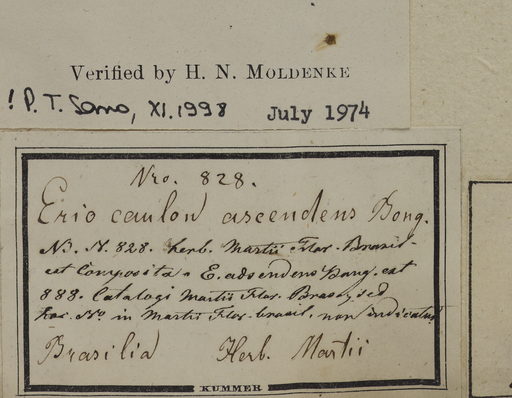 Verified by H. N. MOLDENKE
! P. T. Sano, XI.1998 July 1974
Nro. 828.
Eriocaulon ascendens Bong.
N3. N. 828. herb. Martii Flor. Brasil.
est Composita. E. adscendens Bong. est
888. Catalogi Martii Flor. Bras., sed
hac. No. in Martii Flor. brasil. non indicatur
Brasilia Herb. Martii
KUMMER